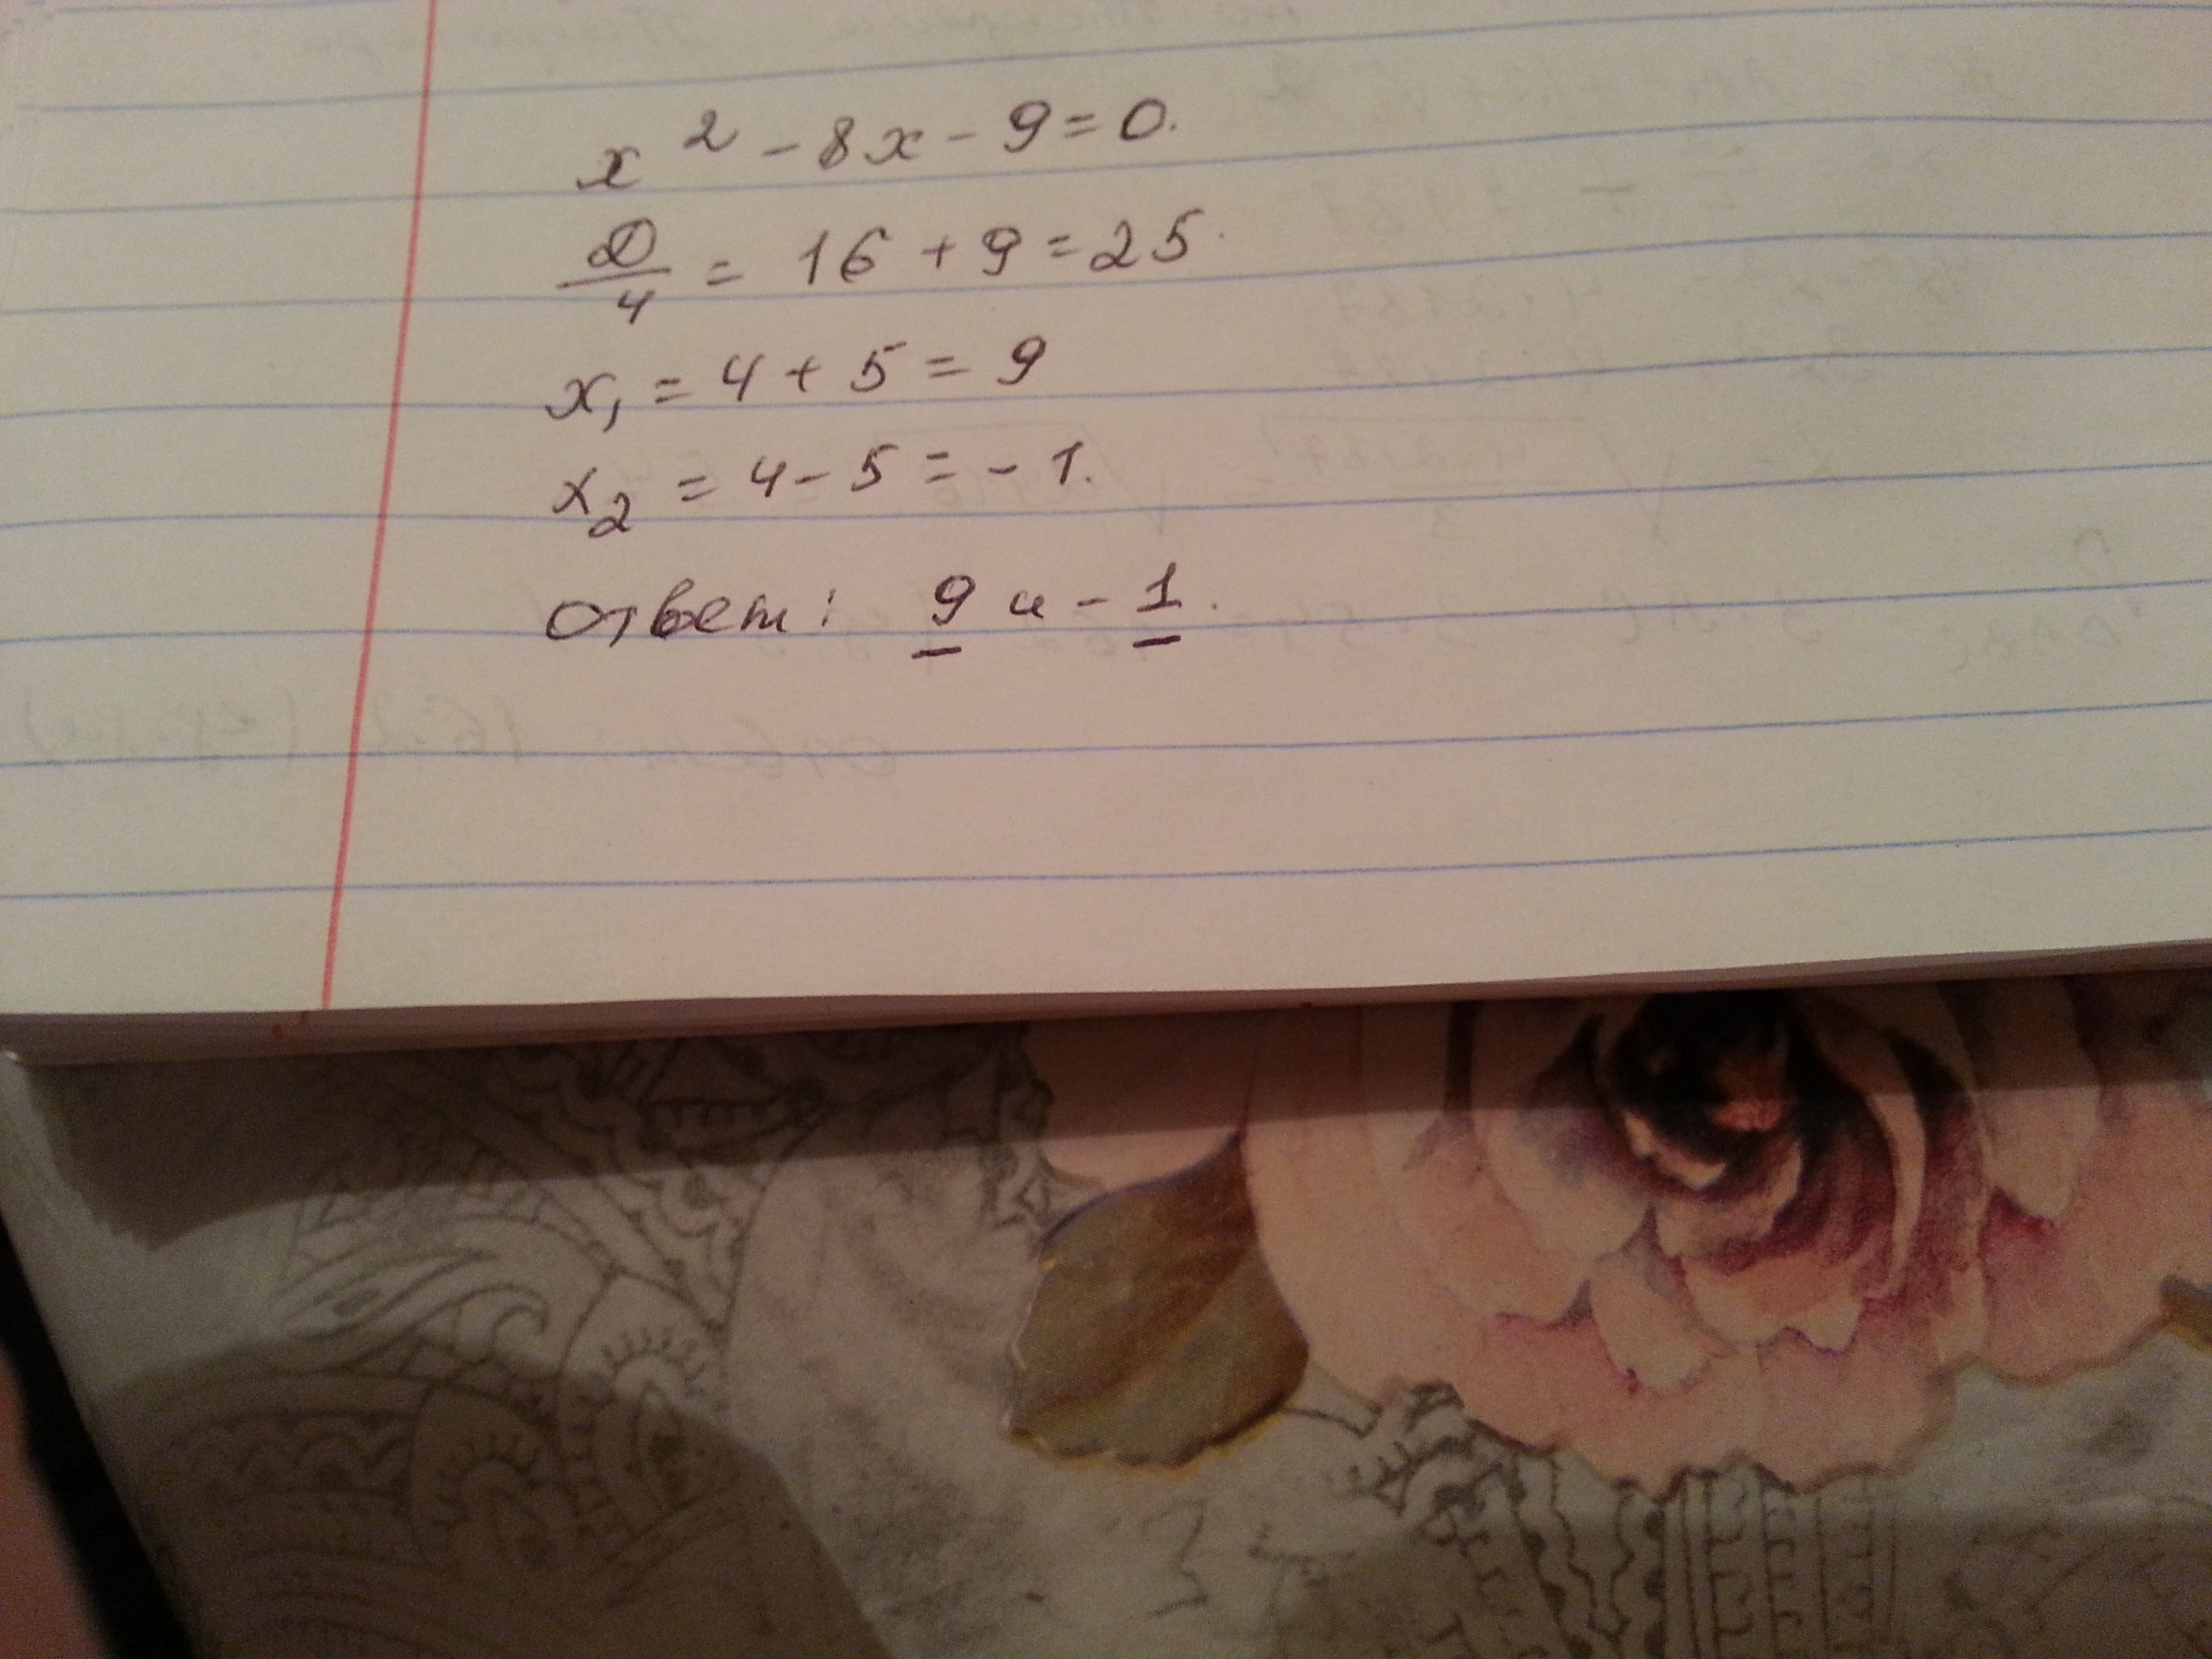 x² - 8x - 9 = 0.
D/4 = 16 + 9 = 25.
x₁ = 4 + 5 = 9
x₂ = 4 - 5 = - 1.
Ответ: 9 и - 1.